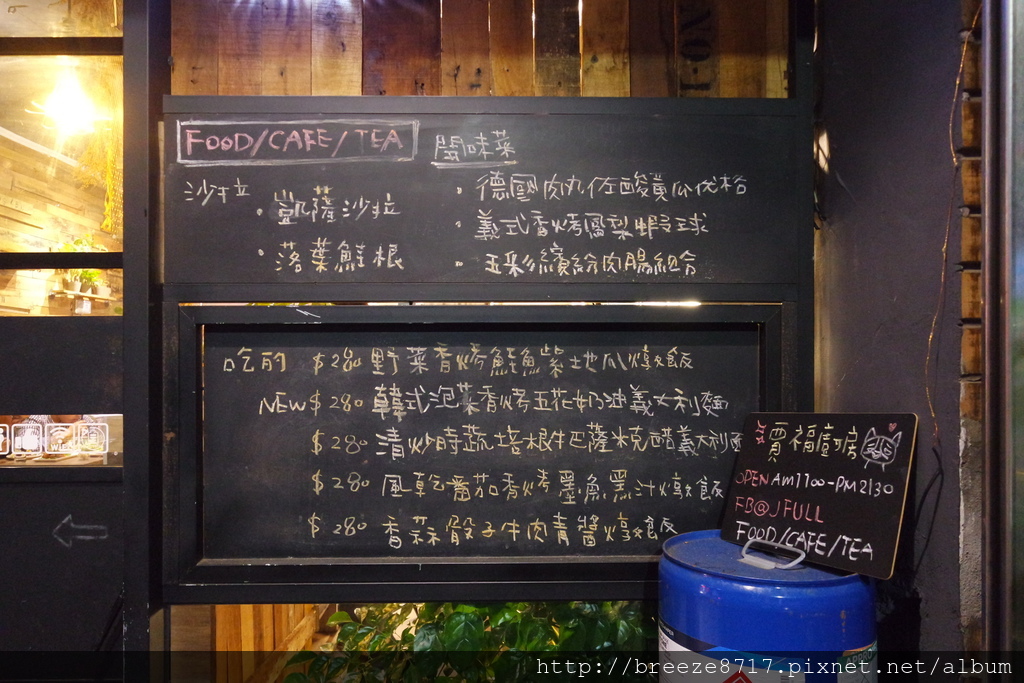 FOOD/CAFE/TEA
開味菜
沙拉
・凱薩沙拉
・落葉鮭根
・德國肉丸佐酸黃瓜優格
・義式香烤鳳梨蝦球
・五彩繽紛肉腸組合
吃的 $280 野菜香烤鮭魚紫地瓜燉飯
NEW $280 韓式泡菜香烤五花奶油義大利麵
$280 清炒時蔬培根巴薩米克醋義大利麵
$280 風乾番茄香烤墨魚黑汁燉飯
$280 香蒜骰子牛肉青醬燉飯
賈福廚房
OPEN AM1100-PM2130
FB@JFULL
FOOD/CAFE/TEA
http://breeze8717.pixnet.net/album